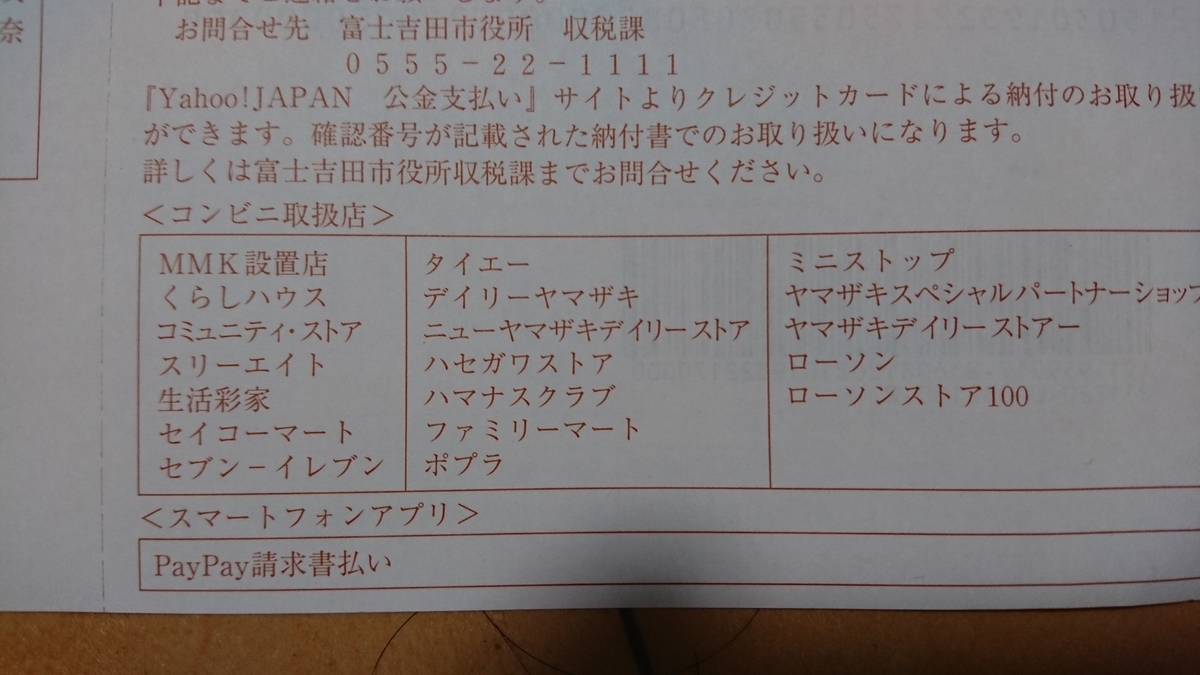 奈
下記までご連絡をお願いします。
お問合せ先　富士吉田市役所　収税課
０５５５－２２－１１１１
『Yahoo!JAPAN　公金支払い』サイトよりクレジットカードによる納付のお取り扱
ができます。確認番号が記載された納付書でのお取り扱いになります。
詳しくは富士吉田市役所収税課までお問合せください。
＜コンビニ取扱店＞
MMK設置店
くらしハウス
コミュニティ・ストア
スリーエイト
生活彩家
セイコーマート
セブン－イレブン
タイエー
デイリーヤマザキ
ニューヤマザキデイリーストア
ハセガワストア
ハマナスクラブ
ファミリーマート
ポプラ
ミニストップ
ヤマザキスペシャルパートナーショップ
ヤマザキデイリーストアー
ローソン
ローソンストア100
＜スマートフォンアプリ＞
PayPay請求書払い